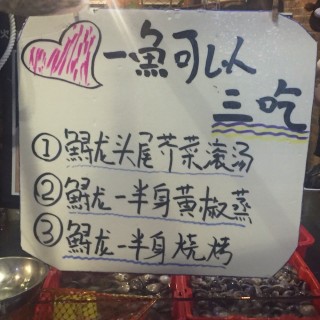 一魚可以
三吃
①鲟龙头尾芥菜滚汤
②鲟龙一半身黄椒蒸
③鲟龙一半身烧烤